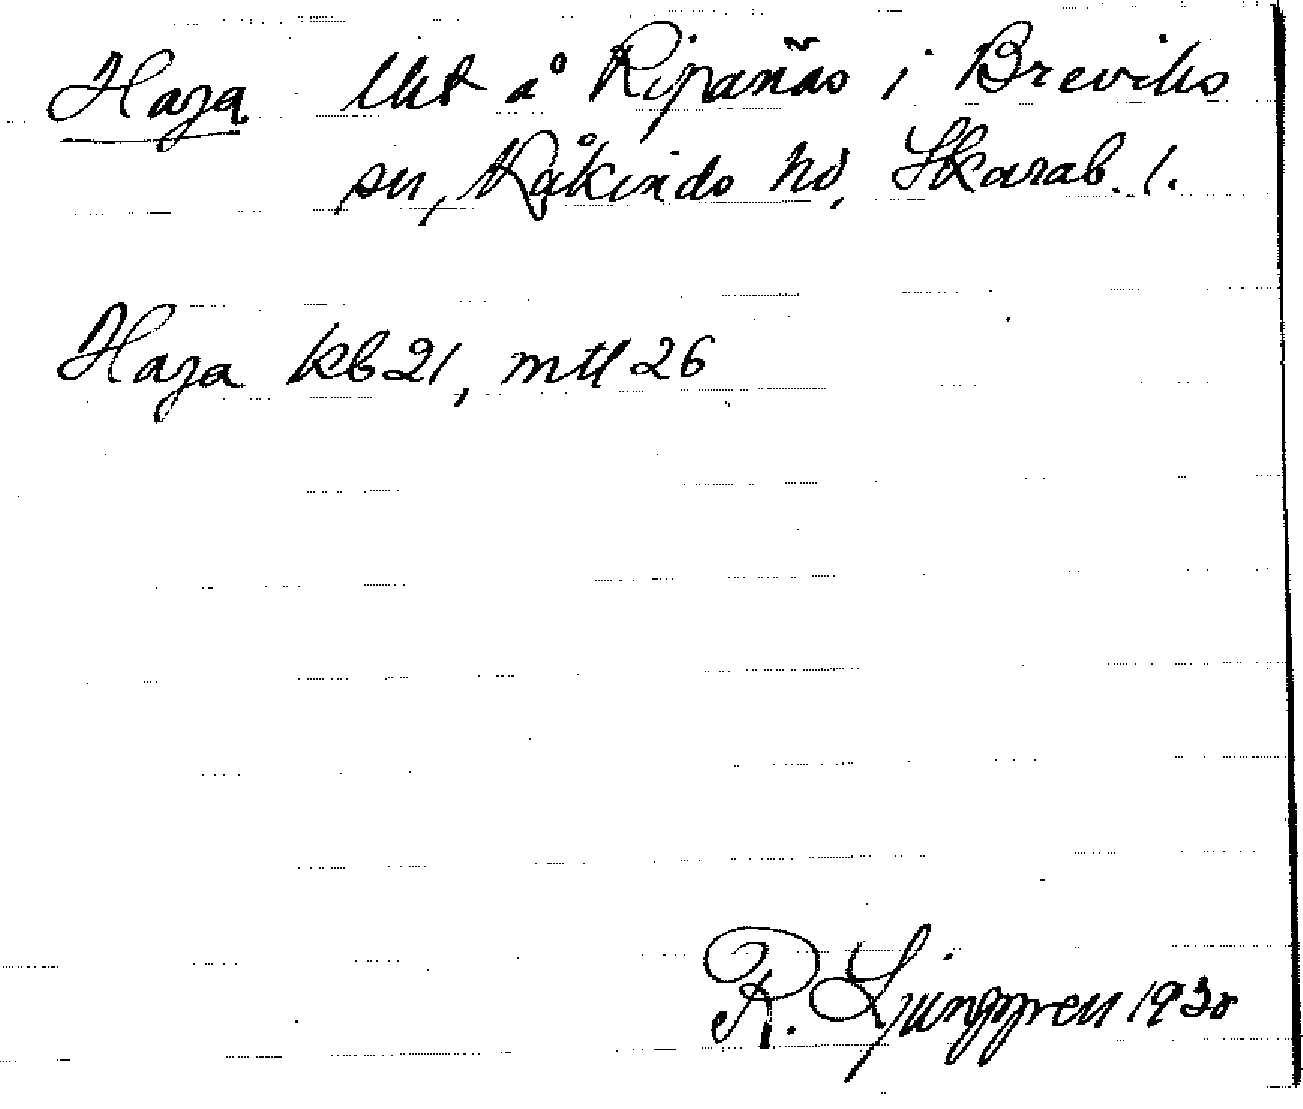 Haga lht å Ripanäs i Breviks
sn, Kåkinds hd, Skarab. l.
Haga kb 21, mtl 26
R. Ljunggren 1930